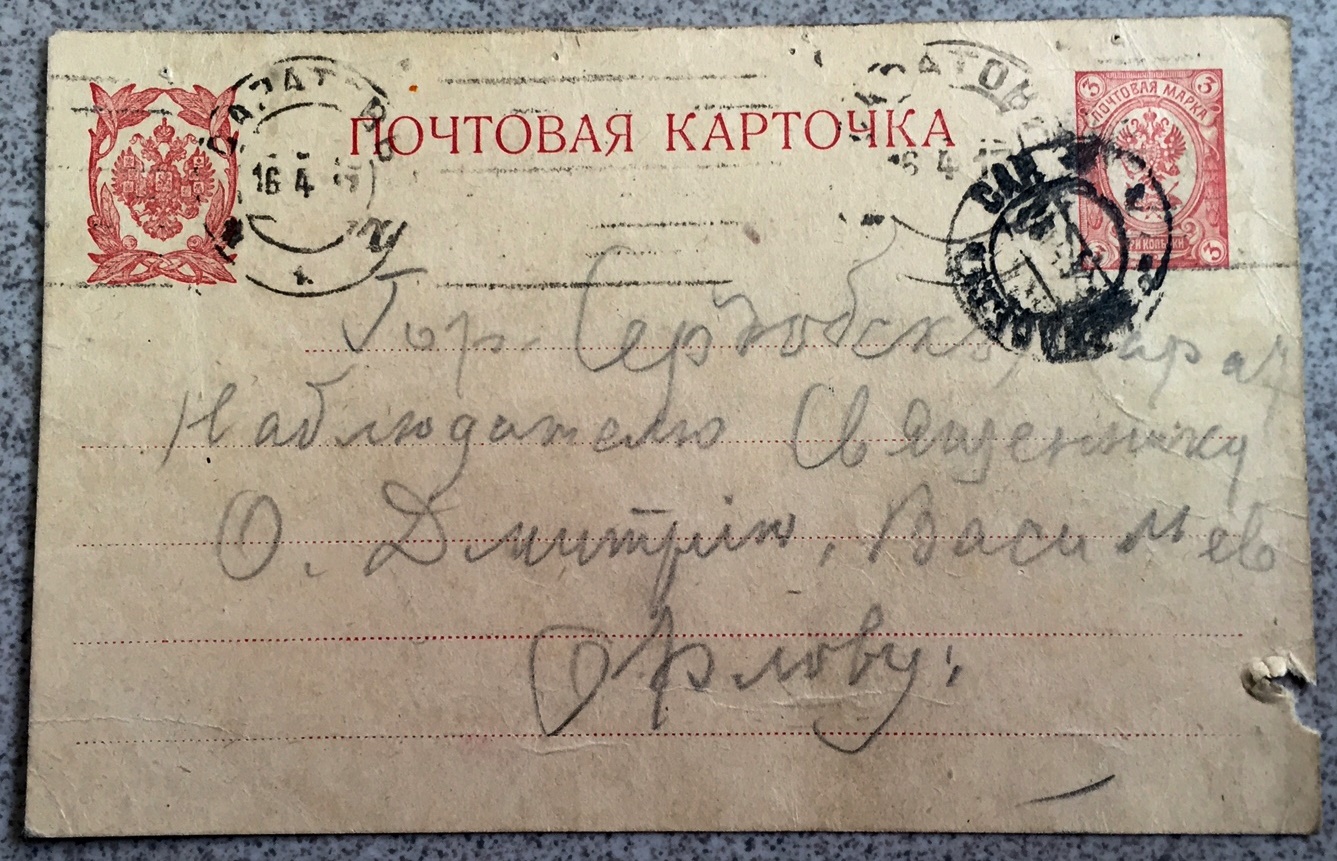 ПОЧТОВАЯ КАРТОЧКА
3 3
ПОЧТОВАЯ МАРКА
3 ТРИ КОПѢЙКИ 3
САРАТОВЪ
16 4
САРАТОВЪ
16 4 17
Гор. Сердобскъ, Сар
Наблюдателю Священнику
О. Дмитрію, Васильев
Орлову